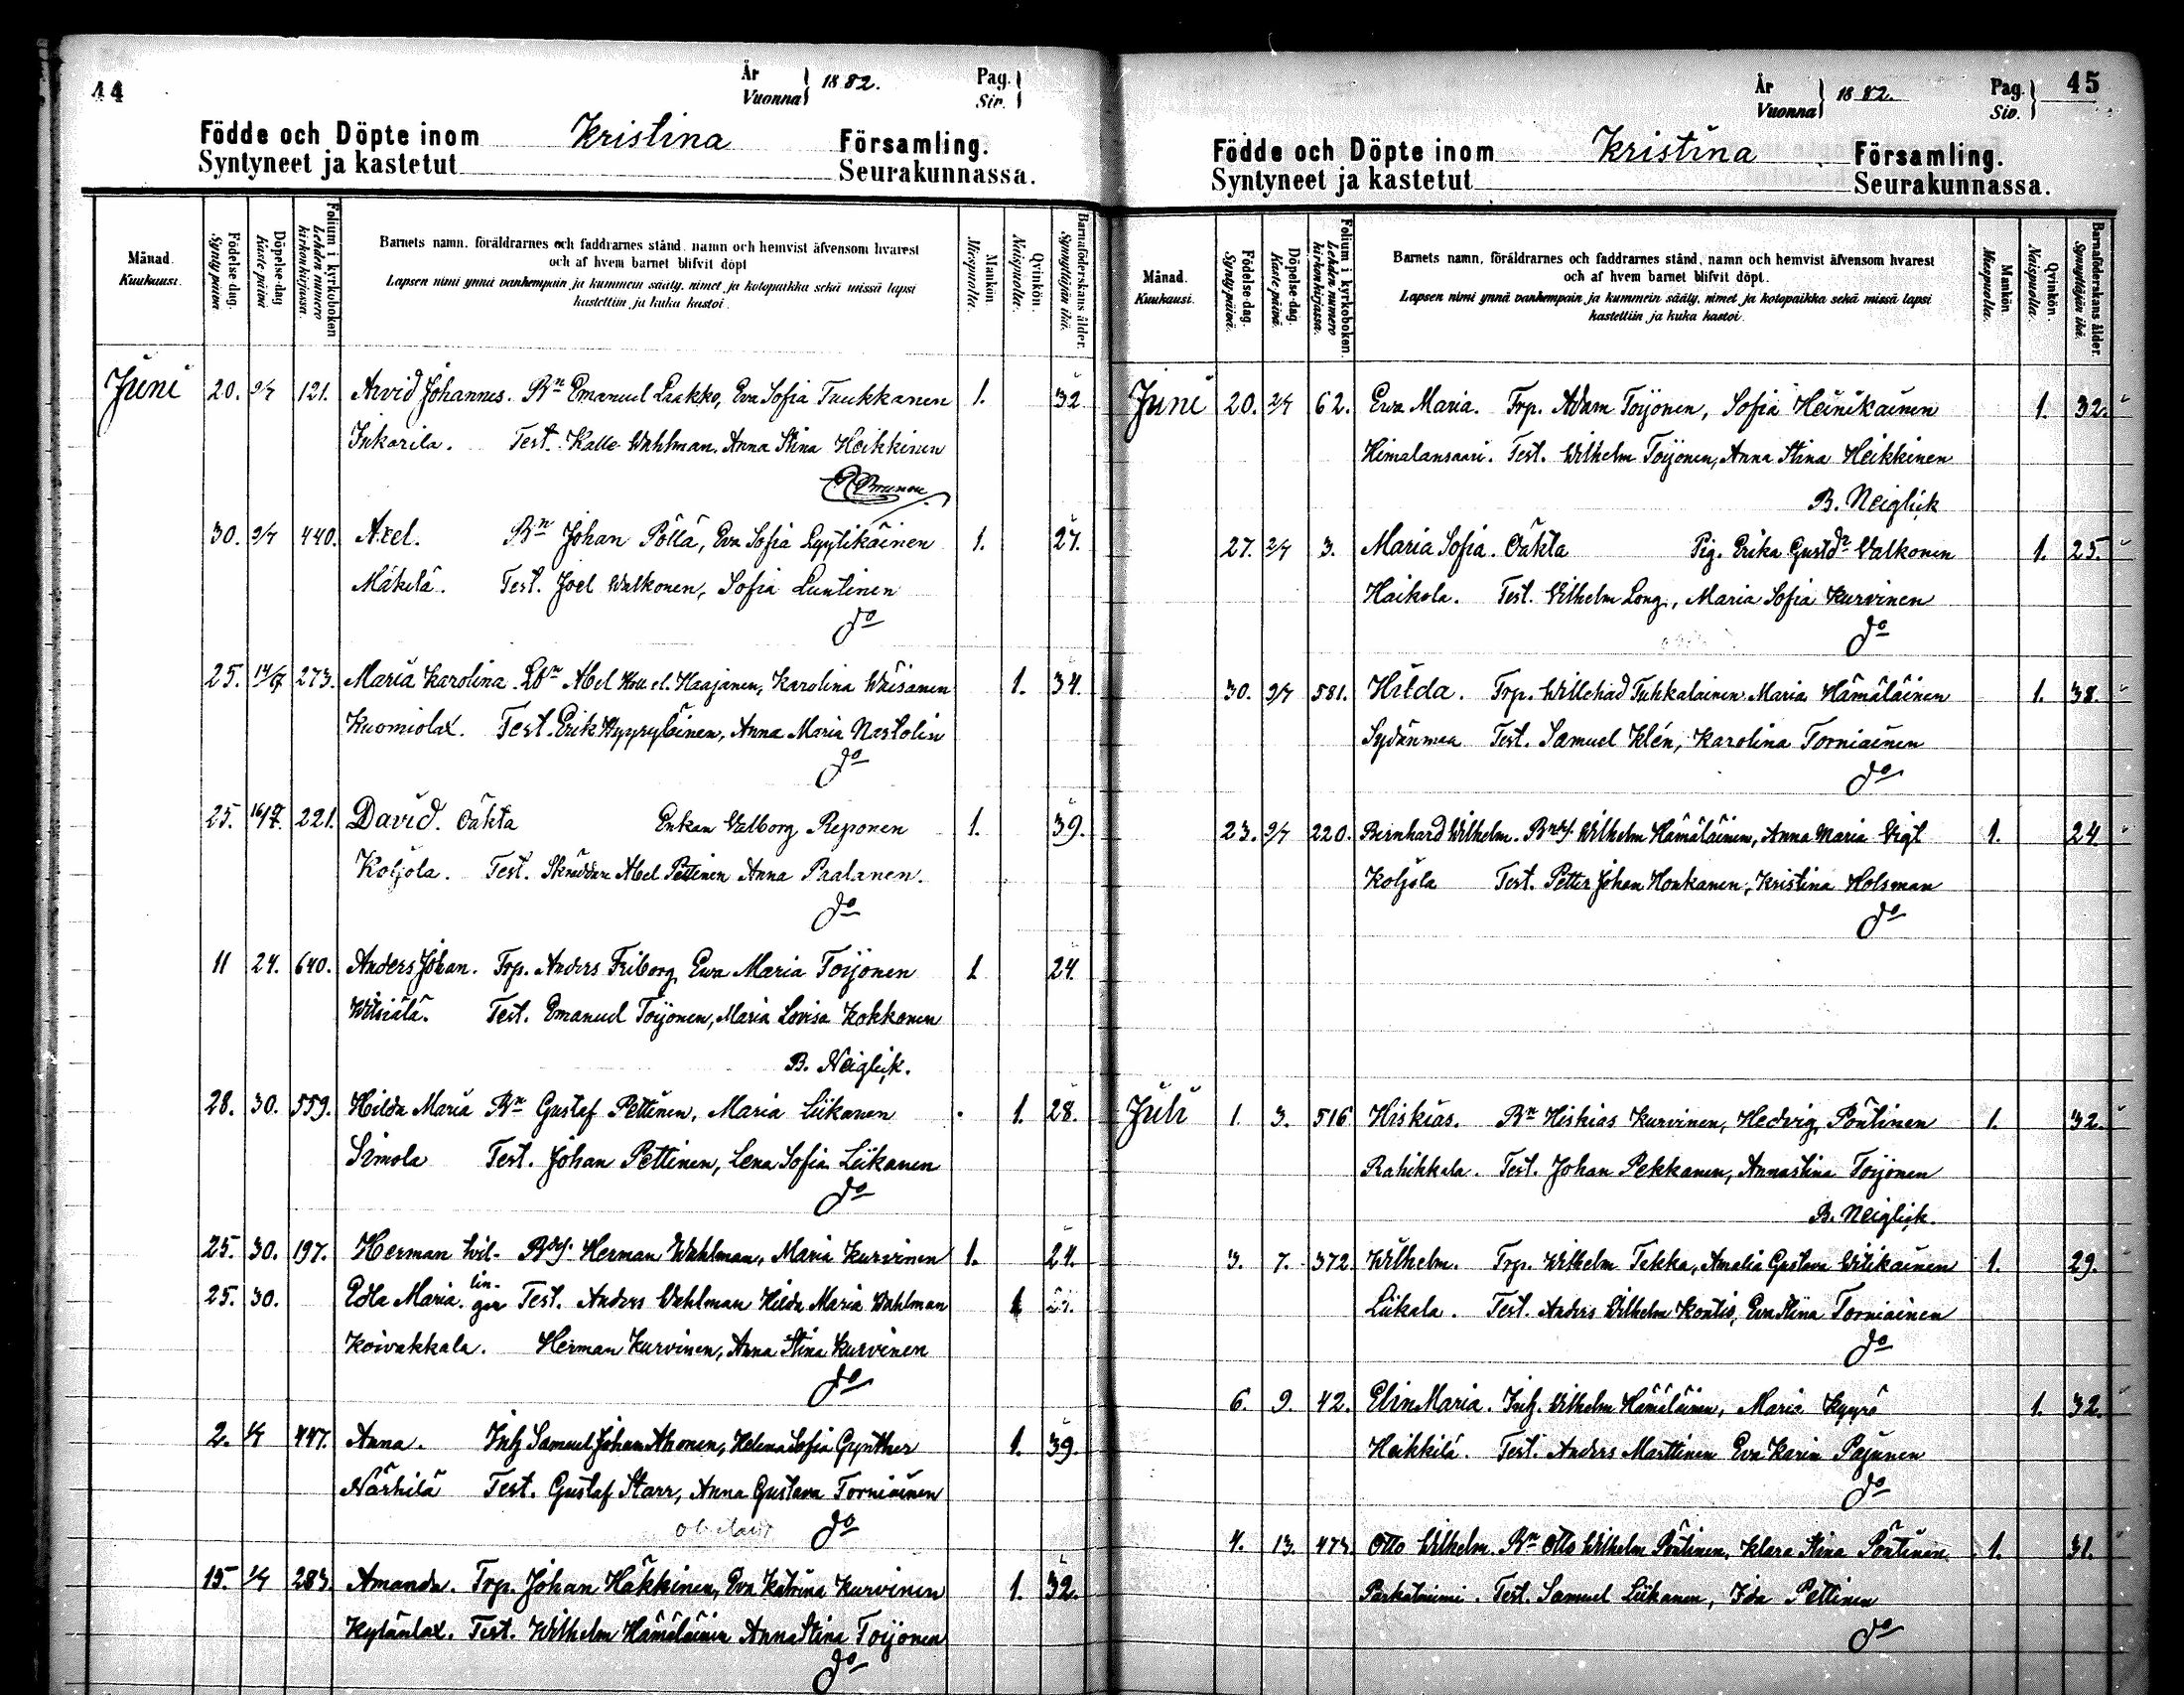 44
År 1882. Pag.
Vuonna Siv.
Födde och Döpte inom Kristina Församling.
Syntyneet ja kastetut Seurakunnassa.
Månad. Kuukausi.
Födelse-dag. Synty-päivä
Döpelse-dag Kaste-päivä
Folium i kyrkoboken Lehden numero kirkonkirjassa.
Barnets namn, föräldrarnes och faddrarnes stånd, namn och hemvist äfvensom hvarest
och af hvem barnet blifvit döpt
Lapsen nimi ynnä vanhempain ja kummein sääty, nimet ja kotopaikka sekä missä lapsi
kastettiin ja kuka kastoi.
Mankön. Miespuolta.
Qvinkön. Naispuolta.
Barnaföderskans ålder. Synnyttäjän ikä.
Juni 20. 2/7 121. Arvid Johannes. Bn Emanuel Laakko, Eva Sofia Tuukkanen 1. 32
Inkarila. Test. Kalle Wahlman, Anna Stina Heikkinen
30. 2/7 440. Axel. Bn Johan Pöllä, Eva Sofia Lyytikäinen 1. 27.
Mäkelä. Test. Joel Walkonen, Sofia Luntinen
do
25. 14/7 273. Maria Karolina. Abel Haajanen, Karolina Wäisänen 1. 34.
Kuomiolax. Test. Erik Hyyryläinen, Anna Maria Nastolin
do
25. 16/7. 221. David. Oäkta Enkan Walborg Reponen 1. 39.
Koljola. Test. Skräddare Abel Pettinen Anna Paalanen.
do
11 24. 640. Anders Johan. Trp. Anders Friborg Ewa Maria Toijonen 1 24.
Test. Emanuel Toijonen, Maria Lovisa Kokkonen
B. Neiglick.
28. 30. 559. Hilda Maria Bn Gustaf Pettinen, Maria Liikanen 1. 28.
Simola Test. Johan Pettinen, Lena Sofia Liikanen
do
25. 30. 197. Herman tvil- Herman Wahlman, Maria Kurvinen 1. 24.
25. 30. Edla Maria. lin- gar Test. Anders Wahlman Hilda Maria Wahlman 1
Koivakkala. Herman Kurvinen, Anna Stina Kurvinen
do
2. 447. Anna. Inh Samuel Johan Ahonen, Helena Sofia Gynther 1. 39.
Närhilä Test. Gustaf Starr, Anna Gustava Torniainen
do
15. 283. Amanda. Trp. Johan Häkkinen, Eva Katrina Kurvinen 1. 32.
Kylänlax. Test. Wilhelm Hämäläinen Anna Stina Toijonen
do
45
År 1882. Pag.
Vuonna Siv.
Födde och Döpte inom Kristina Församling.
Syntyneet ja kastetut Seurakunnassa.
Månad. Kuukausi.
Födelse-dag. Synty-päivä.
Döpelse-dag. Kaste-päivä.
Folium i kyrkoboken. Lehden numero kirkonkirjassa.
Barnets namn, föräldrarnes och faddrarnes stånd, namn och hemvist äfvensom hvarest
och af hvem barnet blifvit döpt.
Lapsen nimi ynnä vanhempain ja kummein sääty, nimet ja kotopaikka sekä missä lapsi
kastettiin ja kuka kastoi.
Mankön Miespuolta.
Qvinkön. Naispuolta.
Barnaföderskans ålder. Synnyttäjän ikä.
Juni 20. 2/7 62. Ewa Maria. Trp. Adam Toijonen, Sofia Heinikainen 1. 32.
Himalansaari. Test. Wilhelm Toijonen, Anna Stina Heikkinen
B. Neiglick
27. 2/7 3. Maria Sofia. Oäkta Pig. Erika Gustdr Walkonen 1. 25.
Haikola. Test. Wilhelm Long, Maria Sofia Kurvinen
do
30. 2/7 581. Hilda. Trp. Willehad Tuhkalainen Maria Hämäläinen 1. 38.
Sydänmaa Test. Samuel Klén, Karolina Torniainen
do
23. 2/7 220. Bernhard Wilhelm. Wilhelm Hämäläinen, Anna Maria Vigt 1. 24.
Koljola Test. Petter Johan Honkanen, Kristina Holsman
do
Juli 1. 3. 516 Hiskias. Bn Hiskias Kurvinen, Hedvig Pöntinen 1. 32.
Rahikkala. Test. Johan Pekkanen, Annastina Toijonen
B. Neiglick.
3. 7. 372 Wilhelm. Trp. Wilhelm Tekka, Amalia Gustava Witikainen 1. 29.
Liikala. Test. Anders Wilhelm Kontio, Eva Stina Torniainen
do
6. 9. 42. Elin Maria. Inh. Wilhelm Hämäläinen, Maria Kyyrö 1. 32.
Heikkilä. Test. Anders Marttinen Eva Karin Pajunen
do
4. 13. 473. Otto Wilhelm. Bn Otto Wilhelm Pöntinen, Klara Stina Pöntinen. 1. 31.
Test. Samuel Liikanen, Ida Pettinen
do